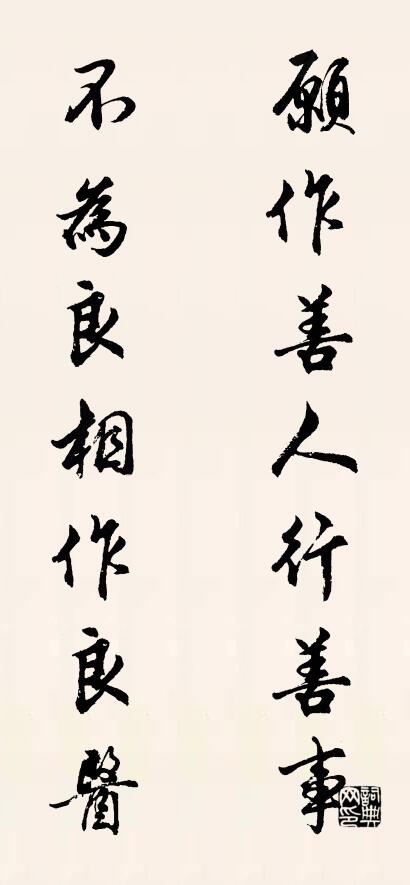 願作善人行善事
不為良相作良醫
詞典網印